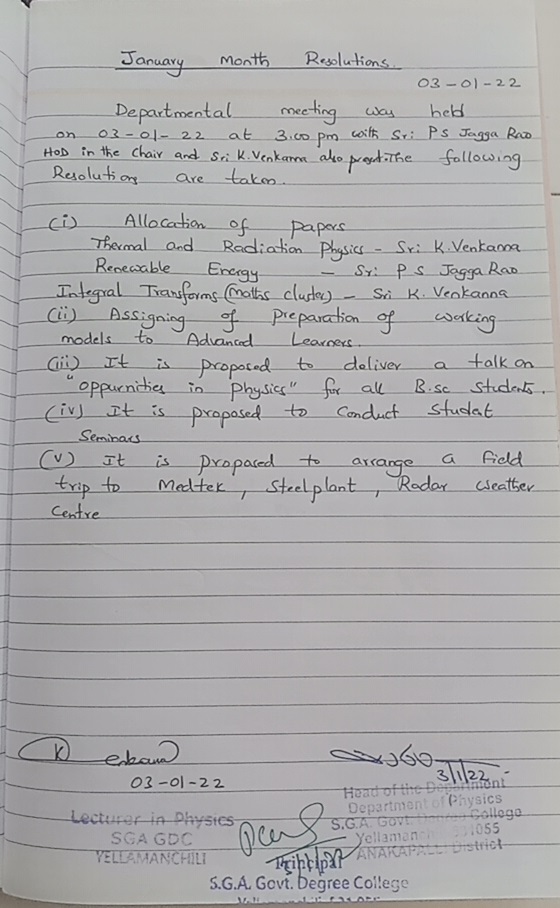 January Month Resolutions.
03-01-22
Departmental meeting was held
on 03-01-22 at 3.00 pm with Sri P S Jagga Rao
HOD in the chair and Sri K.Venkanna also present. The following
Resolutions are taken.
(i) Allocation of papers
Thermal and Radiation Physics - Sri K.Venkanna
Renewable Energy - Sri P S Jagga Rao
Integral Transforms (maths cluster) - Sri K. Venkanna
(ii) Assigning of preparation of working
models to Advanced Learners.
(iii) It is proposed to deliver a talk on
"oppurnities in physics" for all B.sc Students.
(iv) It is proposed to Conduct Student
Seminars
(v) It is proposed to arrange a field
trip to Medtek, Steelplant, Radar weather
Centre
03-01-22
3/1/22
Lecturer in Physics
SGA GDC
YELLAMANCHILI
Head of the Department
Department of Physics
S.G.A. Govt. Degree College
Yellamanch 1055
ANAKAPALLI District
Principal
S.G.A. Govt. Degree College